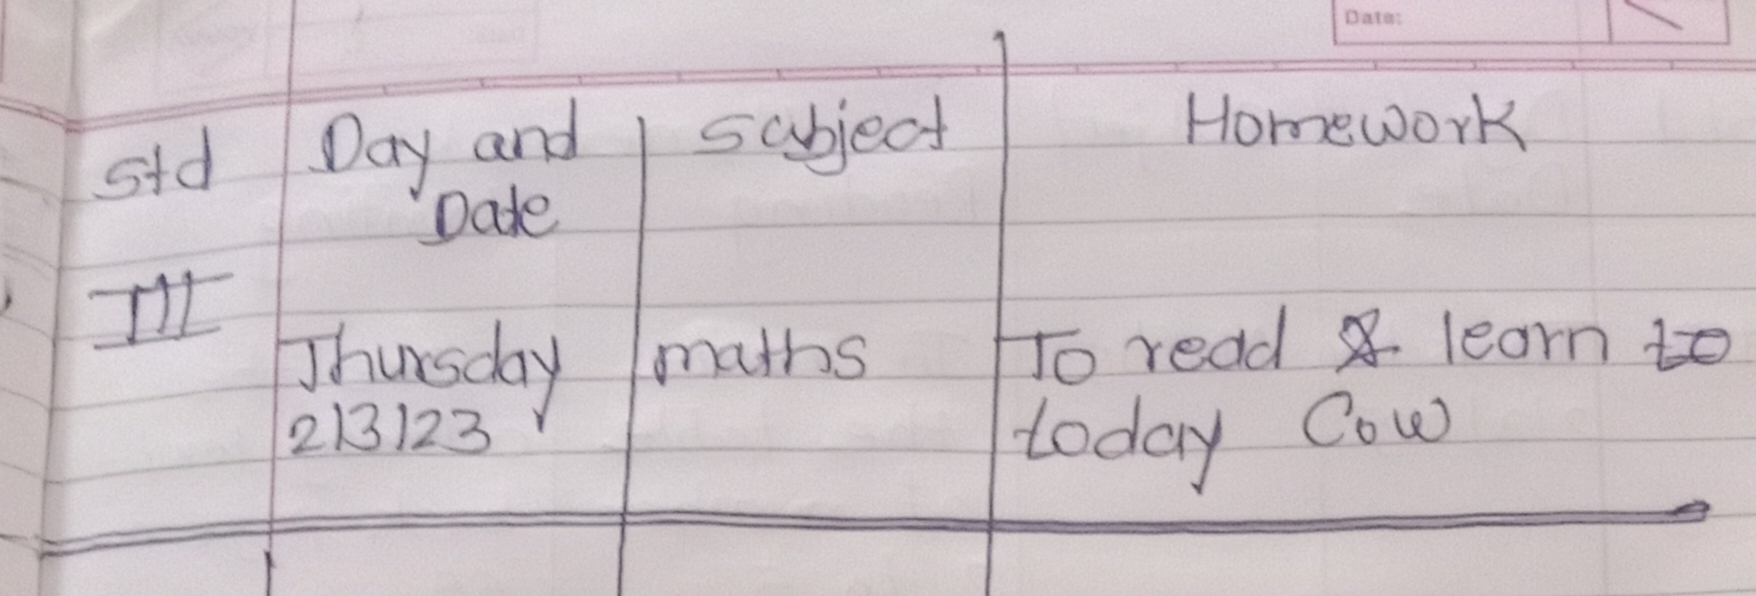 Date:
Std Day and Subject Homework
Date
III
Thursday maths To read & learn to
2/3/23 today Cow